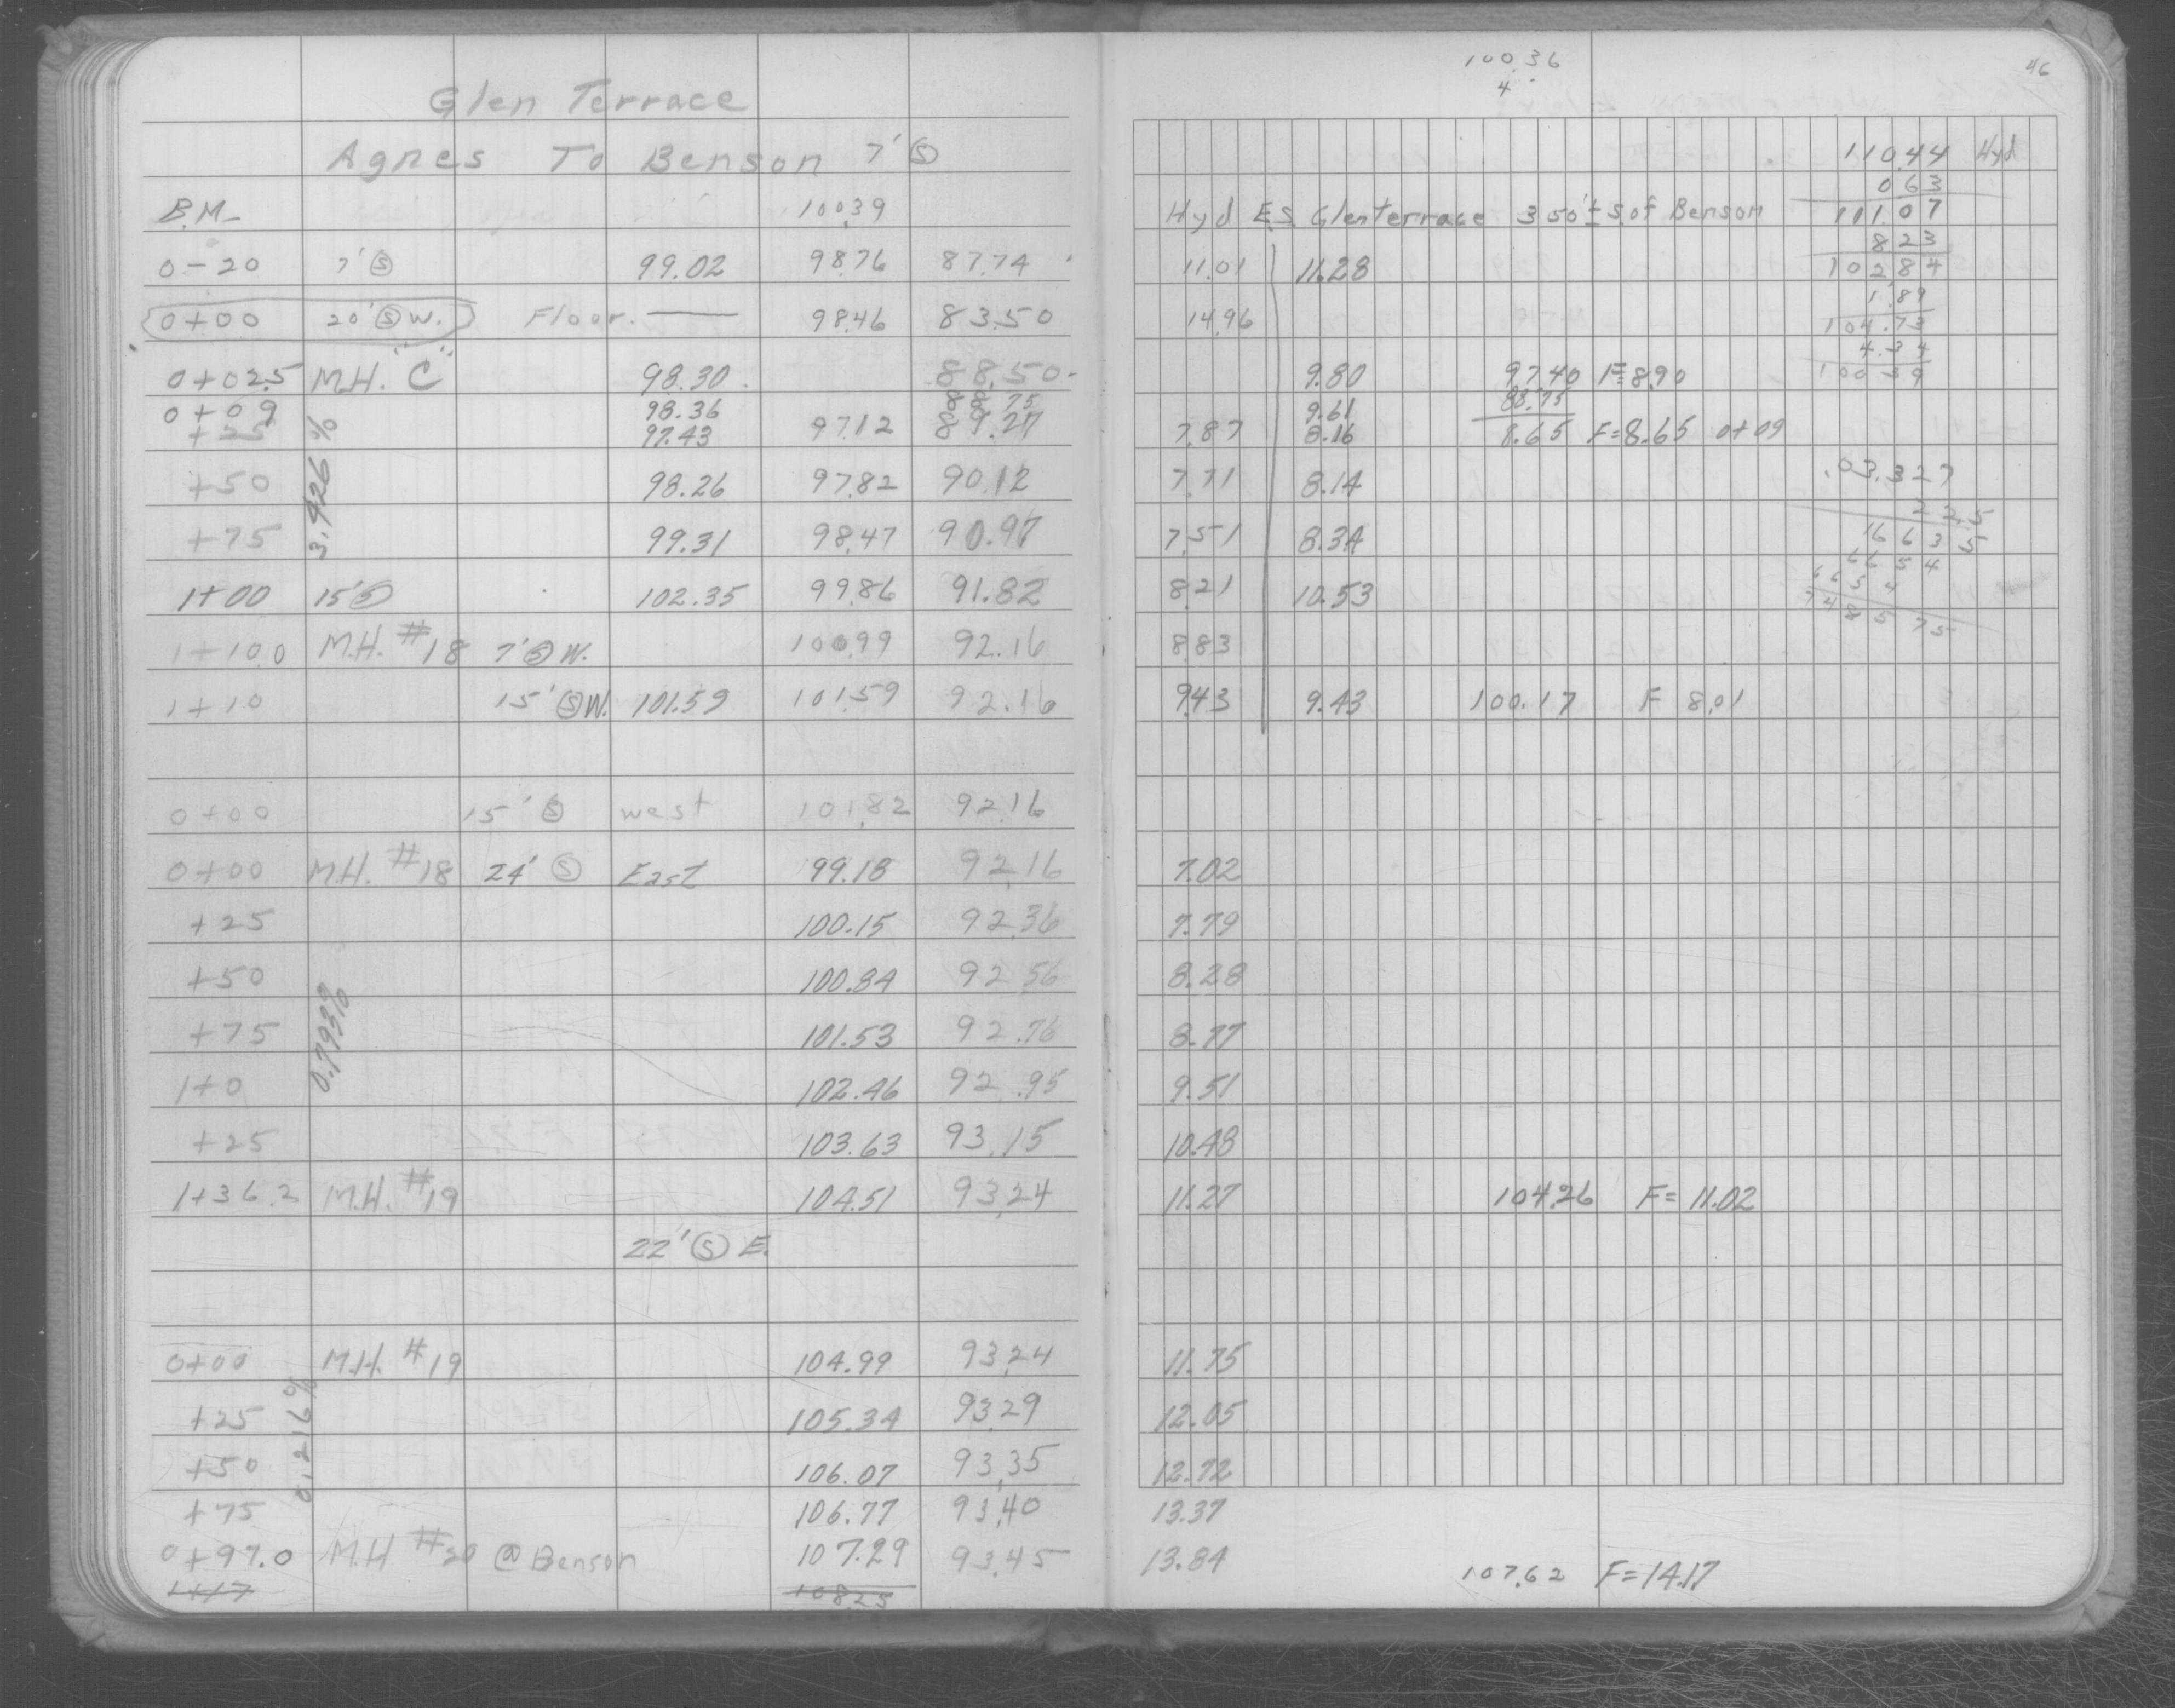 100.36
46
4
Glen Terrace
110.44 Hyd
Agnes To Benson 7' Ⓢ
0 63
B.M. 100.39 Hyd E.S. Glenterrace 350'± S of Benson 111.07
8 23
0-20 7' Ⓢ 99.02 98.76 87.74 11.01 11.28 102 84
1.89
0+00 20' Ⓢ W. Floor. — 98.46 83.50 14.96 104.73
4.34
0+02.5 M.H. "C" 98.30 88.50 9.80 97.40 F=8.90 100 39
0+09 98.36 88 75 9.61 88.75
+25 97.43 97.12 89.27 7.87 8.16 8.65 F=8.65 0+09
3.426 %
+50 98.26 97.82 90.12 7.71 8.14 .03.327
22.5
+75 99.31 98.47 90.97 7.51 8.34 16 6 3 5
6 6 5 4
1+00 15' Ⓢ 102.35 99.86 91.82 8.21 10.53 6 6 5 4
7 4 8 5 7 5
1+10.0 M.H. #18 7' Ⓢ W. 100.99 92.16 8.83
1+10 15' Ⓢ W. 101.59 101.59 92.16 9.43 9.43 100.17 F 8.01
0+00 15' Ⓢ west 101.82 92.16
0+00 M.H. #18 24' Ⓢ East 99.18 92.16 7.02
+25 100.15 92.36 7.79
+50 100.84 92.56 8.28
0.793%
+75 101.53 92.76 8.77
1+0 102.46 92.95 9.51
+25 103.63 93.15 10.48
1+36.2 M.H. #19 104.51 93.24 11.27 104.26 F= 11.02
22' Ⓢ E.
0+00 M.H. #19 104.99 93.24 11.75
+25 105.34 93.29 12.05
0.216%
+50 106.07 93.35 12.72
+75 106.77 93.40 13.37
0+97.0 M.H #20 @ Benson 107.29 93.45 13.84 107.62 F=14.17
1+17 108.25